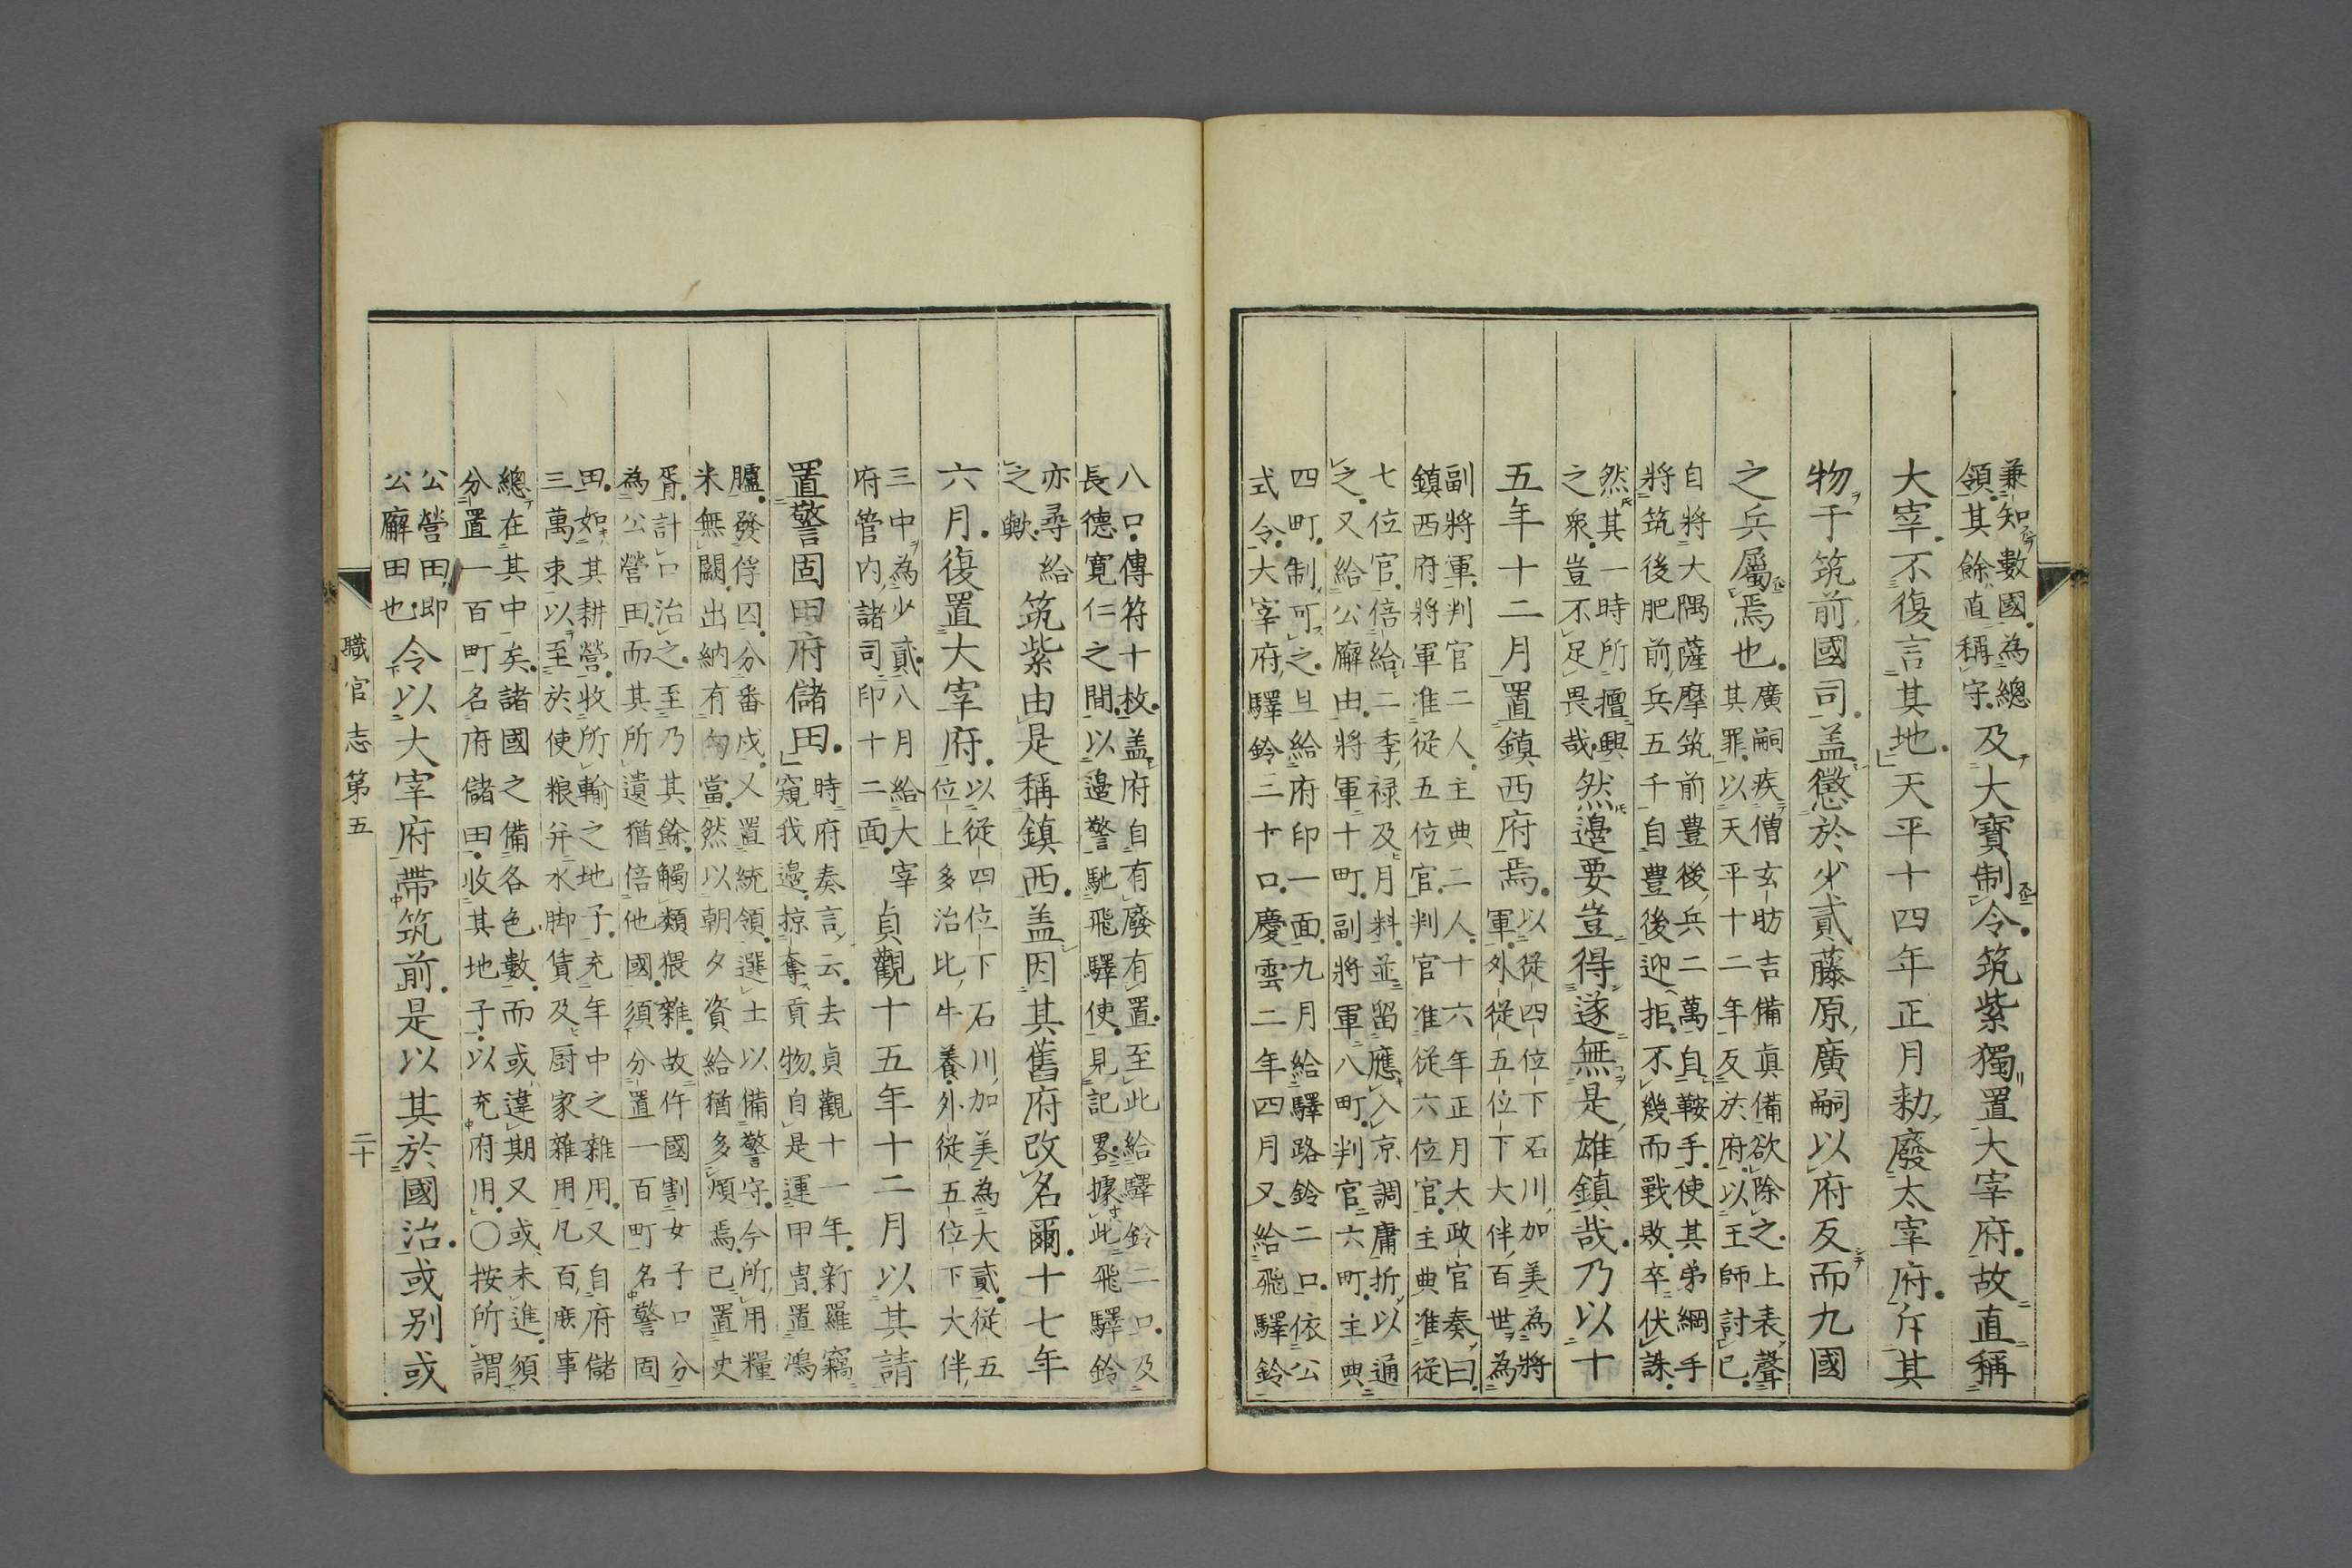 兼知數國為總
領其餘直稱守及大寶制令筑紫獨置大宰府故直稱
大宰不復言其地天平十四年正月勅廢太宰府斥其
物于筑前國司盖懲於少貳藤原廣嗣以府反而九國
之兵屬焉也廣嗣疾僧玄昉吉備眞備欲除之上表聲
其罪以天平十二年反於府以王師討已
自將大隅薩摩筑前豊後兵二萬自鞍手使其弟綱手
將筑後肥前兵五千自豊後迎拒不幾而戰敗卒伏誅
然其一時所擅興
之衆豈不足畏哉然邊要豈得遂無是雄鎮哉乃以十
五年十二月置鎮西府焉以從四位下石川加美為將
軍外從五位下大伴百世為
副將軍判官二人主典二人十六年正月大政官奏曰
鎮西府將軍准從五位官判官准從六位官主典准從
七位官倍給二季祿及月料並留應入京調庸折以通
之又給公廨由將軍十町副將軍八町判官六町主典
四町制可之旦給府印一面九月給驛路鈴二口依公
式令大宰府驛鈴二十口慶雲二年四月又給飛驛鈴
八口傳符十枚盖府自有廢有置至此給驛鈴二口及
長德寛仁之間以邊警馳飛驛使見記畧據此飛驛鈴
亦尋給
之歟筑紫由是稱鎮西盖因其舊府改名爾十七年
六月復置大宰府以從四位下石川加美為大貳從五
位上多治比牛養外從五位下大伴
三中為少貳八月給大宰
府管内諸司印十二面貞觀十五年十二月以其請
置警固田府儲田時府奏言云去貞觀十一年新羅竊
窺我邊掠奪貢物自是運甲冑置鴻
臚發俘囚分番戍又置統領選士以備警守今所用糧
米無闕出納有匈當然以朝夕資給猶多煩焉已置史
胥計口治之至乃其餘觸類猥雜故件國割女子口分
為公營田而其所遺猶倍他國須分置一百町名警固
田如其耕營收所輸之地子充年中之雜用又自府儲
三萬束以至於使粮并水脚賃及厨家雜用凡百庶事
總在其中矣諸國之備各色數而或違期又或未進須
分置一百町名府儲田收其地子以充府用〇按所謂
公營田即
公廨田也令以大宰府帶筑前是以其於國治或别或
職官志第五
二十